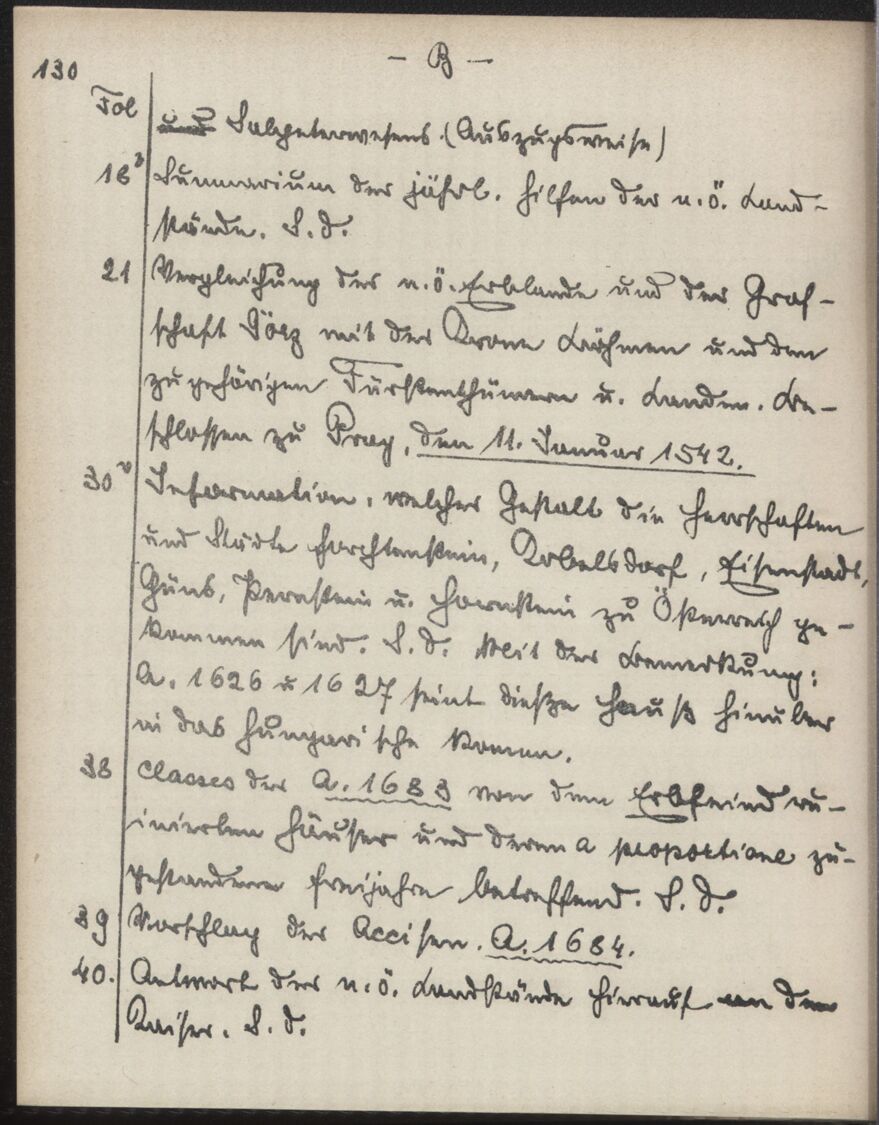 130
- B -
Fol
und Salpeterwesens. (Auszugsweise)
18ᵛ Summarium der jährl. Hilfen der n.ö. Land-
stände. S. d.
21 Vergleichung der n.ö. Erblande und der Graf-
schaft Görz mit der Krone Böhmen und den
zugehörigen Fürstenthümern u. Landen. Be-
schlossen zu Prag, den 11. Januar 1542.
30ᵛ Information, welcher Gestalt die Herrschaften
und Städte Forchtenstein, Kobelsdorf, Eisenstadt,
Güns, Pernstein u. Hornstein zu Österreich ge-
kommen sind. S. d. Mit der Bemerkung:
A. 1626 u 1627 seint dieße Heuß hinüber
in das Hungarische komen.
38 Classes der A. 1683 von dem Erbfeind ru-
inierten Häuser und deren a proportione zu-
gestandene Freijahre betreffend. S. d.
39 Vorschlag der Accisen. A. 1684.
40. Antwort der n.ö. Landstände hierauf an den
Kaiser. S. d.